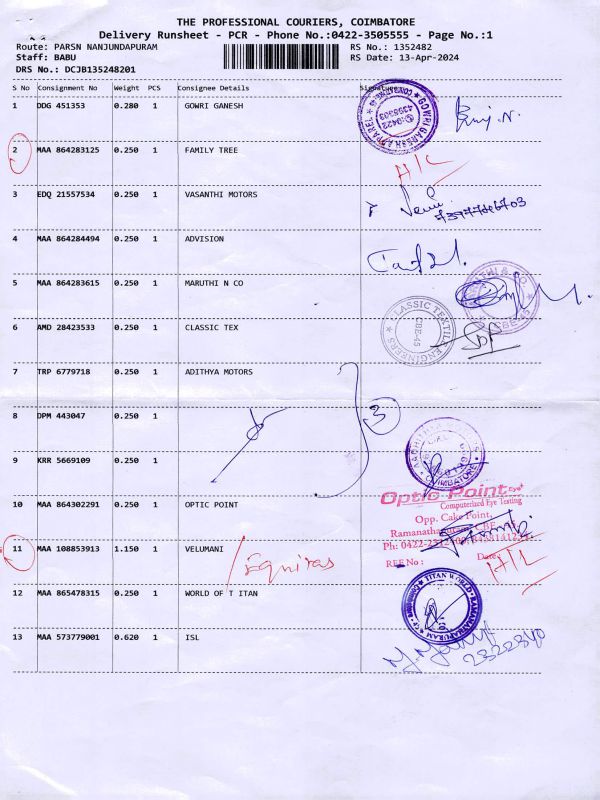 THE PROFESSIONAL COURIERS, COIMBATORE
Delivery Runsheet - PCR - Phone No.:0422-3505555 - Page No.:1
Route: PARSN NANJUNDAPURAM RS No.: 1352482
Staff: BABU RS Date: 13-Apr-2024
DRS No.: DCJB135248201
S No Consignment No Weight PCS Consignee Details Signature
1 DDG 451353 0.280 1 GOWRI GANESH
GOWRI GANESH APPAREL
2 MAA 864283125 0.250 1 FAMILY TREE H/L
3 EDQ 21557534 0.250 1 VASANTHI MOTORS
4 MAA 864284494 0.250 1 ADVISION
5 MAA 864283615 0.250 1 MARUTHI N CO
6 AMD 28423533 0.250 1 CLASSIC TEX
CLASSIC TEXTILE ENGINEERS
CBE-45
7 TRP 6779718 1 ADITHYA MOTORS
8 DPM 443047 0.250 1 3
9 KRR 5669109 0.250 1
COIMBATORE
10 MAA 864302291 0.250 1 OPTIC POINT
Optic Point Eye+
Computerized Eye Testing
Opp. Cake Point,
Ph: 0422-
REF No : Date :
11 MAA 108853913 1.150 1 VELUMANI Equitas H/L
12 MAA 865478315 0.250 1 WORLD OF T ITAN
TITAN WORLD RAMANATHAPURAM
13 MAA 573779001 0.620 1 ISL
2322340